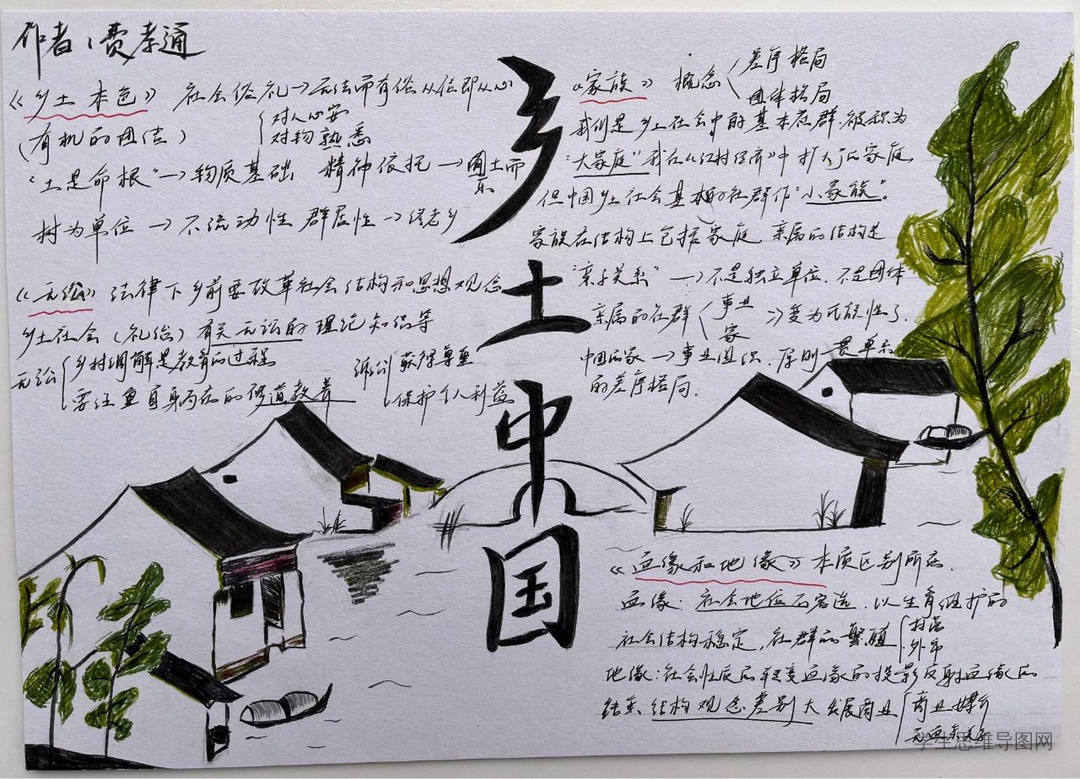 作者：费孝通
乡土中国
《乡土本色》 社会俗礼→无法而有俗 从俗即从心
(有机的团结) 对人心安
对物熟悉
"土是命根"→物质基础 精神依托→圜土而
村为单位→不流动性 群居性→终老乡
《无讼》法律下乡前要改革社会结构和思想观念
乡土社会（礼治）有关无讼的理论知识等
无讼 乡村调解是教育的过程
诉讼 获得尊重
保护个人利益
《家族》 概念 差序格局
团体格局
我们是乡土社会中的基本社群,被称为
"大家庭"我在《江村经济》中扩大了家庭
但中国乡土社会基本的社群作"小家族"。
家族在结构上包括家庭 亲属的结构是
"亲子关系"→不是独立单位.不是团体
亲属的社群 事业
家
中国的家→事业组织.原则
的差序格局.
《血缘和地缘》本质区别所在.
血缘：社会地位 以生育维护的
社会结构稳定,社群的繁殖
地缘:社会性质的转变 血缘的投影反射血缘的
结果 结构观念差别大 发展商业 商业媒介
学生思维导图网